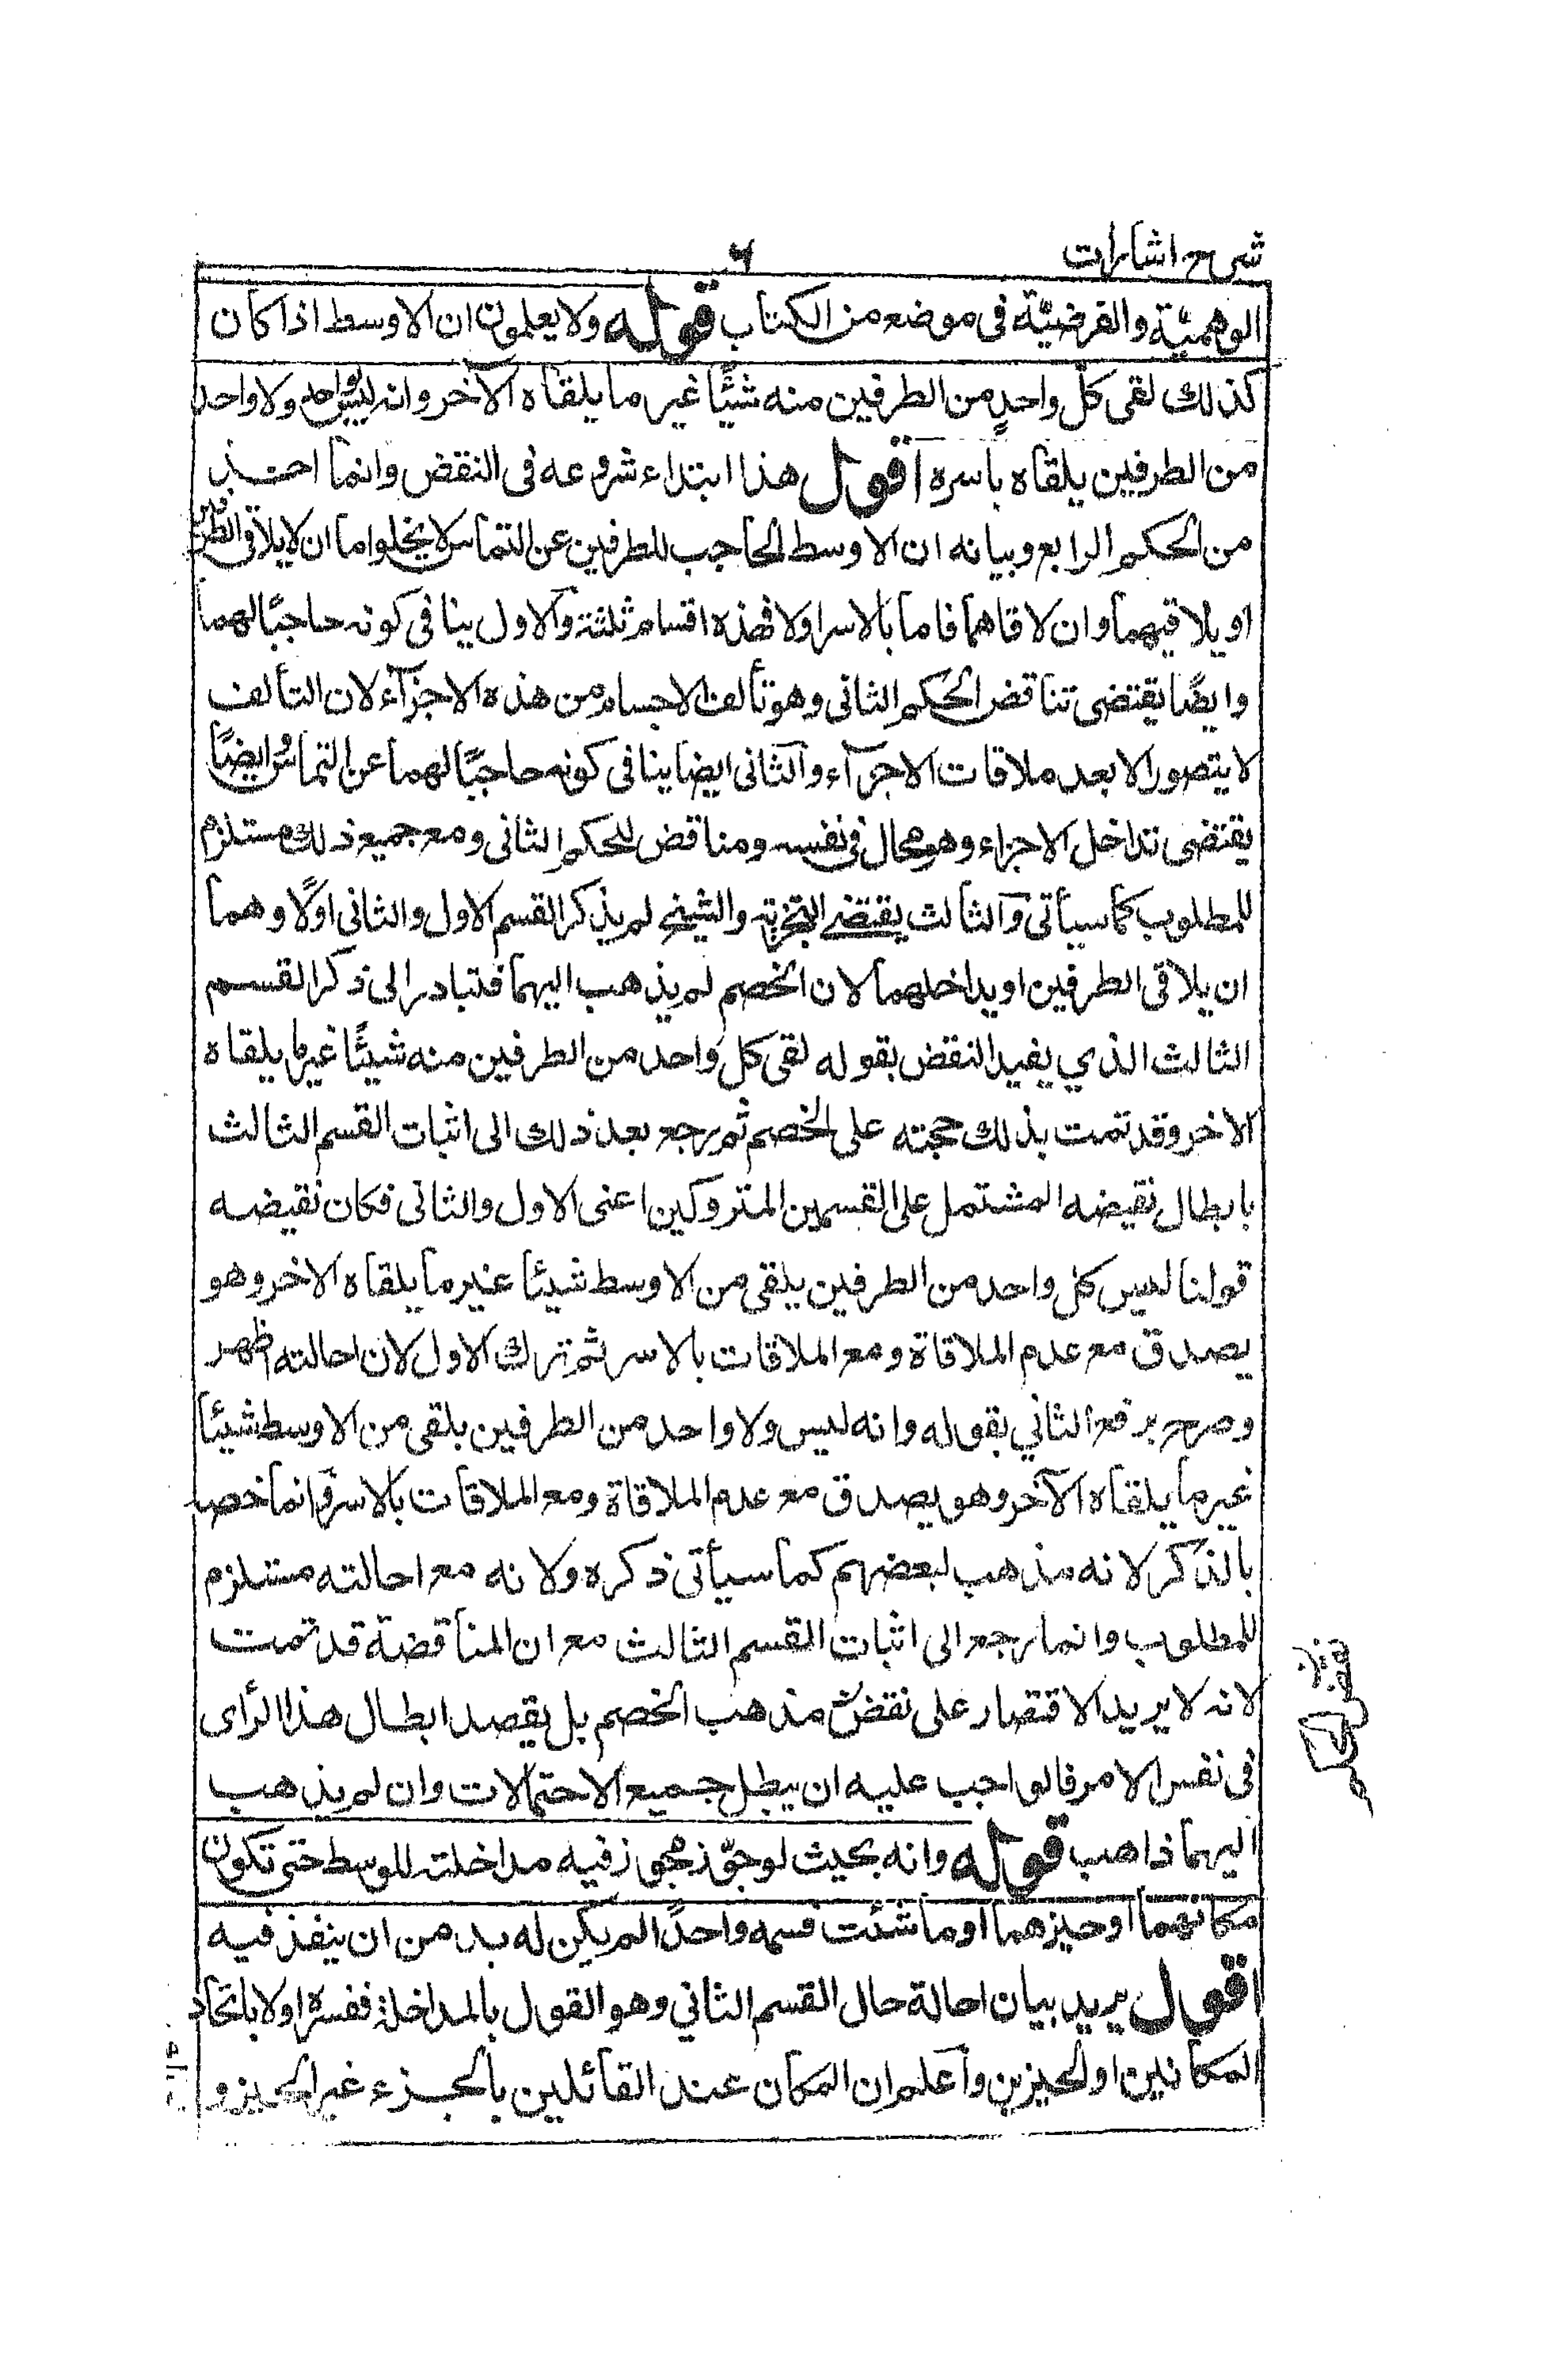 شرح اشارات
٦
الوهمیّة والفرضیّة فی موضعه من الکتاب قوله ولا یعلمون ان الاوسط اذا کان
کذلك لقی کل واحدٍ من الطرفین منه شیئًا غیر ما یلقاه الآخر وانه لیس ولا واحد
من الطرفین یلقاه باسره اقول هذا ابتداء شروعه فی النقض وانما اخذ
من الحکم الرابع وبیانه ان الاوسط الحاجب للطرفین عن التماس لا یخلوا ما ان لا یلاقی الطرفین
او یلاقیهما وان لاقاهما فاما بالاسر اولا فهذه اقسام ثلثة والاول ینافی کونه حاجبًا لهما
وایضًا یقتضی تناقض الحکم الثانی وهو تألف الاجسام من هذه الاجزآء لان التألف
لا یتصور الا بعد ملاقات الاجزآء والثانی ایضا ینافی کونه حاجبًا لهما عن التماس وایضًا
یقتضی تداخل الاجزاء وهو محال فی نفسه ومناقض للحکم الثانی ومع جمیع ذلك مستلزم
للمطلوب کما سیأتی والثالث یقتضی التجزیة والشیخ لم یذکر القسم الاول والثانی اولًا وهما
ان یلاقی الطرفین او یداخلهما لان الخصم لم یذهب الیهما فتبادر الی ذکر القسم
الثالث الذی یفید النقض بقوله لقی کل واحد من الطرفین منه شیئًا غیر ما یلقاه
الاخر وقد تمت بذلك حجته علی الخصم ثم رجع بعد ذلك الی اثبات القسم الثالث
بابطال نقیضه المشتمل علی القسمین المتروکین اعنی الاول والثانی فکان نقیضه
قولنا لیس کل واحد من الطرفین یلقی من الاوسط شیئا غیر ما یلقاه الاخر وهو
یصدق مع عدم الملاقاة ومع الملاقات بالاسر ثم ترك الاول لان احالته اظهر
وصرح برفع الثانی بقوله وانه لیس ولا واحد من الطرفین یلقی من الاوسط شیئا
غیر ما یلقاه الآخر وهو یصدق مع عدم الملاقاة ومع الملاقات بالاسر وانما خصه
بالذکر لانه مذهب لبعضهم کما سیأتی ذکره ولانه مع احالته مستلزم
للمطلوب وانما رجع الی اثبات القسم الثالث مع ان المناقضة قد تمت
لانه لا یرید الاقتصار علی نقض مذهب الخصم بل یقصد ابطال هذا الرأی
فی نفس الامر فالواجب علیه ان یبطل جمیع الاحتمالات وان لم یذهب
الیهما ذاهب قوله وانه بحیث لو جوّز مجوز فیه مداخلته للوسط حتی تکون
مکانهما او حیزهما او ما شئت فسمه واحدًا لم یکن له بد من ان ینفذ فیه
اقول یرید بیان احالة حال القسم الثانی وهو القول بالمداخلة ففسره اولا باتحاد
المکانین او الحیزین واعلم ان المکان عند القائلین بالجزء غیر الحیز و